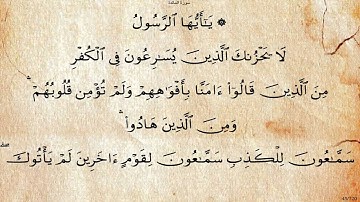 سورة المائدة
۞ يَـٰٓأَيُّهَا ٱلرَّسُولُ
لَا يَحْزُنكَ ٱلَّذِينَ يُسَـٰرِعُونَ فِى ٱلْكُفْرِ
مِنَ ٱلَّذِينَ قَالُوٓا۟ ءَامَنَّا بِأَفْوَٰهِهِمْ وَلَمْ تُؤْمِن قُلُوبُهُمْ ۛ
وَمِنَ ٱلَّذِينَ هَادُوا۟ ۛ
سَمَّـٰعُونَ لِلْكَذِبِ سَمَّـٰعُونَ لِقَوْمٍ ءَاخَرِينَ لَمْ يَأْتُوكَ ۖ